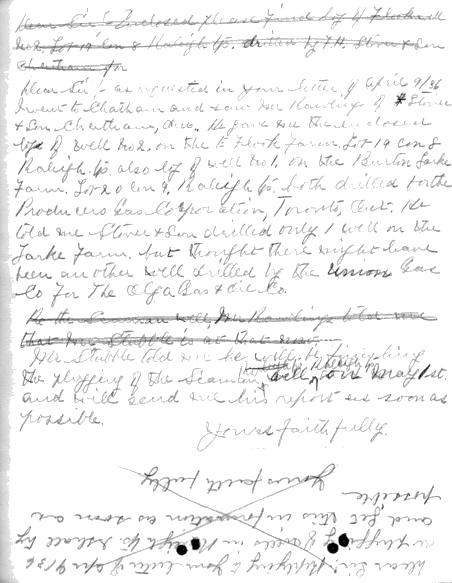 Dear Sir:- Enclosed please find log of Flook well
No2. Lot 19 Con 8 Raleigh Tp. drilled by Stover & Son
Chatham for
Dear Sir:- as requested in your letter of April 9/36
I went to Chatham and saw Mr Rawlings of Stover
& Son, Chatham, Ont. He gave me the enclosed
log of well No2. on the E Flook Farm. Lot 19 con 8
Raleigh Tp. also log of well No1. on the Burton Farm. Lot 20 con 9, Raleigh Tp. both drilled for the
Producers Gas Corporation, Toronto, Ont. He
told me Stover & Son drilled only 1 well on the
Farm. but thought there might have
been another well drilled by the Union Gas
Co for The Olga Gas & Oil Co.
Re the Seaman well, Mr Rawlings told me
that Mr Stubble is at that
Mr. Stubble told me he will be finishing
the plugging of the Seaman well, on May 1st.
and will send me his report as soon as
possible.
Yours faithfully.
Dear Sir:- Replying to your letter of Apr 9/36
re plugging of wells in Raleigh Tp. I shall try
and get this information as soon as
possible
Yours faithfully